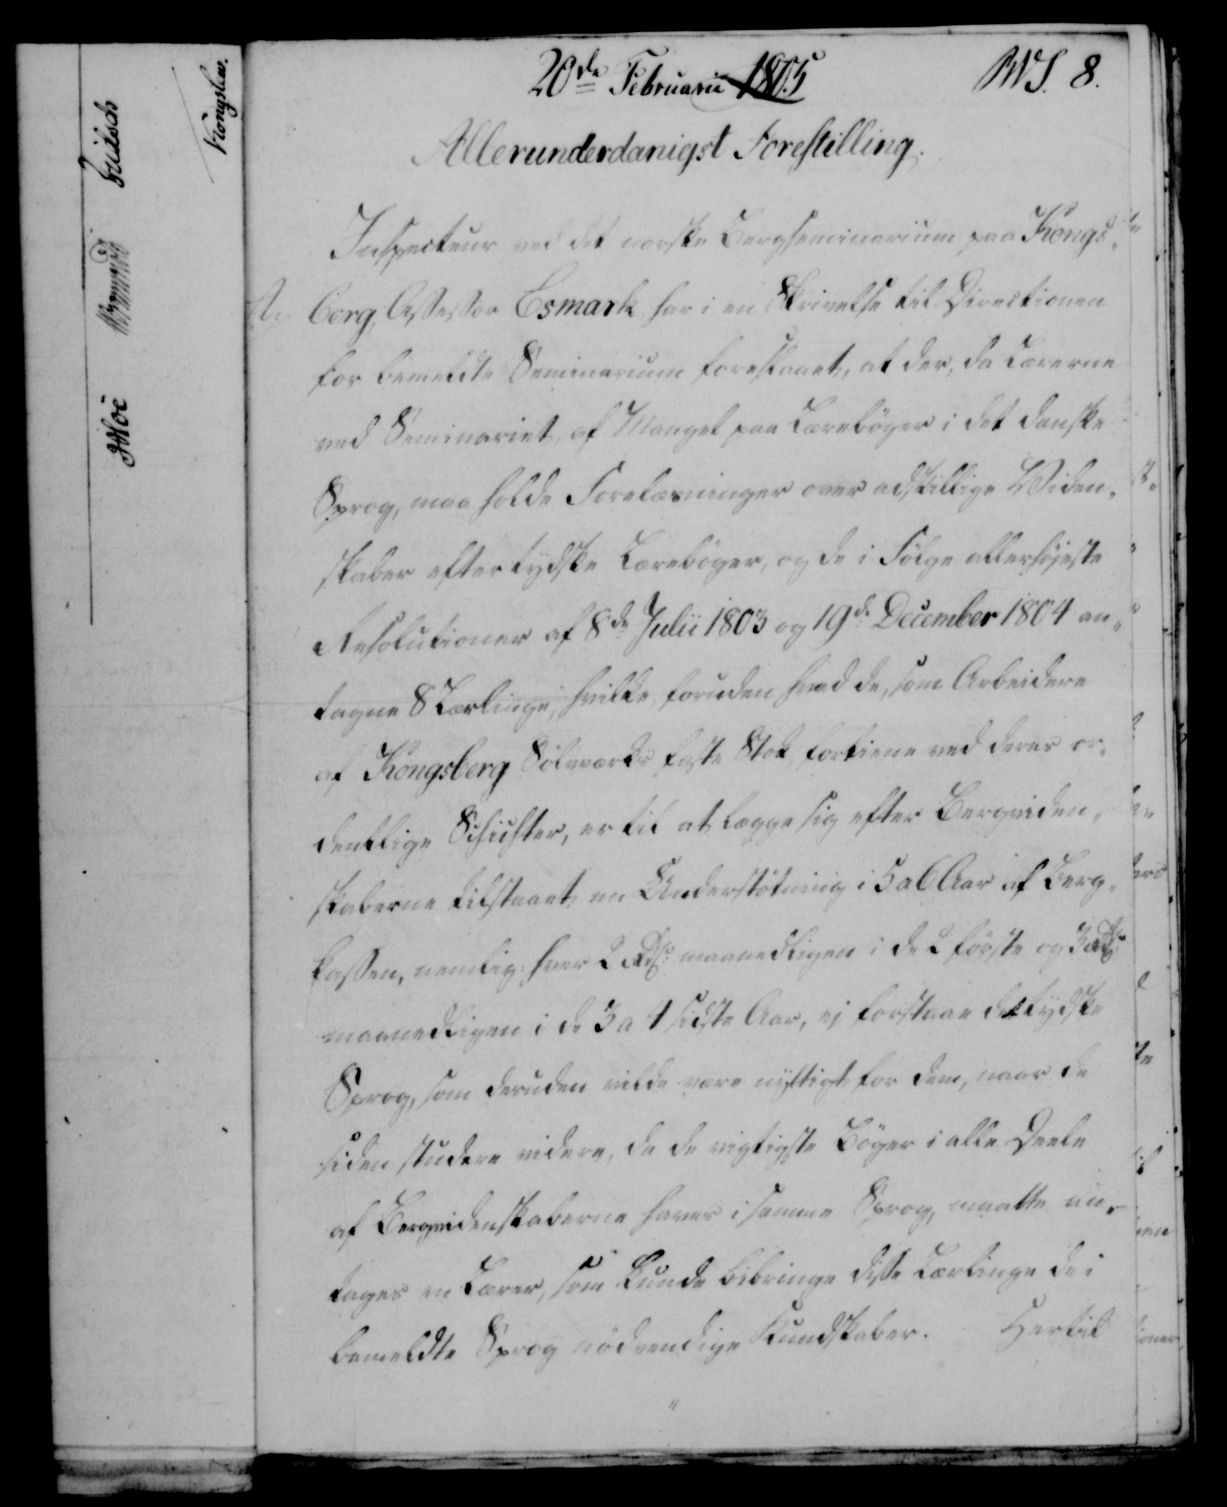 20de Februarii 1805
No. 8.
Allerunderdanigst Forestilling.
Inspecteur ved det norske Bergseminarium paa Kongs-
berg, Assessor Esmark har i en Skrivelse til Directionen
for bemeldte Seminarium forestaaet, at der, da Lærerne
ved Seminariet, af Mangel paa Lærebøger i det danske
Sprog, maa holde Forelæsninger over adskillige Viden-
skaber efter tydske Lærebøger, og de i Følge allerhøjeste
Resolutioner af 8de Julii 1803 og 19de December 1804 an-
tagne 8 Lærlinge, hvilke, foruden hvad de, som Arbeidere
af Kongsberg Sølvværks faste Stok fortiene ved deres or-
dentlige Schichter, er til at lægge sig efter Bergviden-
skaberne tilstaaet en Understøtning i 5 a 6 Aar af Berg-
kassen, nemlig: hver 2 Rdr. maanedligen i de 2 første og 3 Rdr.
maanedligen i de 3 a 4 sidste Aar, ej forstaae det tydske
Sprog, som desuden vilde være nyttigt for dem, naar de
siden studere videre, da de vigtigste Bøger i alle Deele
af Bergvidenskaberne haves i samme Sprog, maatte an-
tages en Lærer, som kunde bibringe disse Lærlinge de i
bemeldte Sprog nødvendige Kundskaber. Hertil
Kongslew.